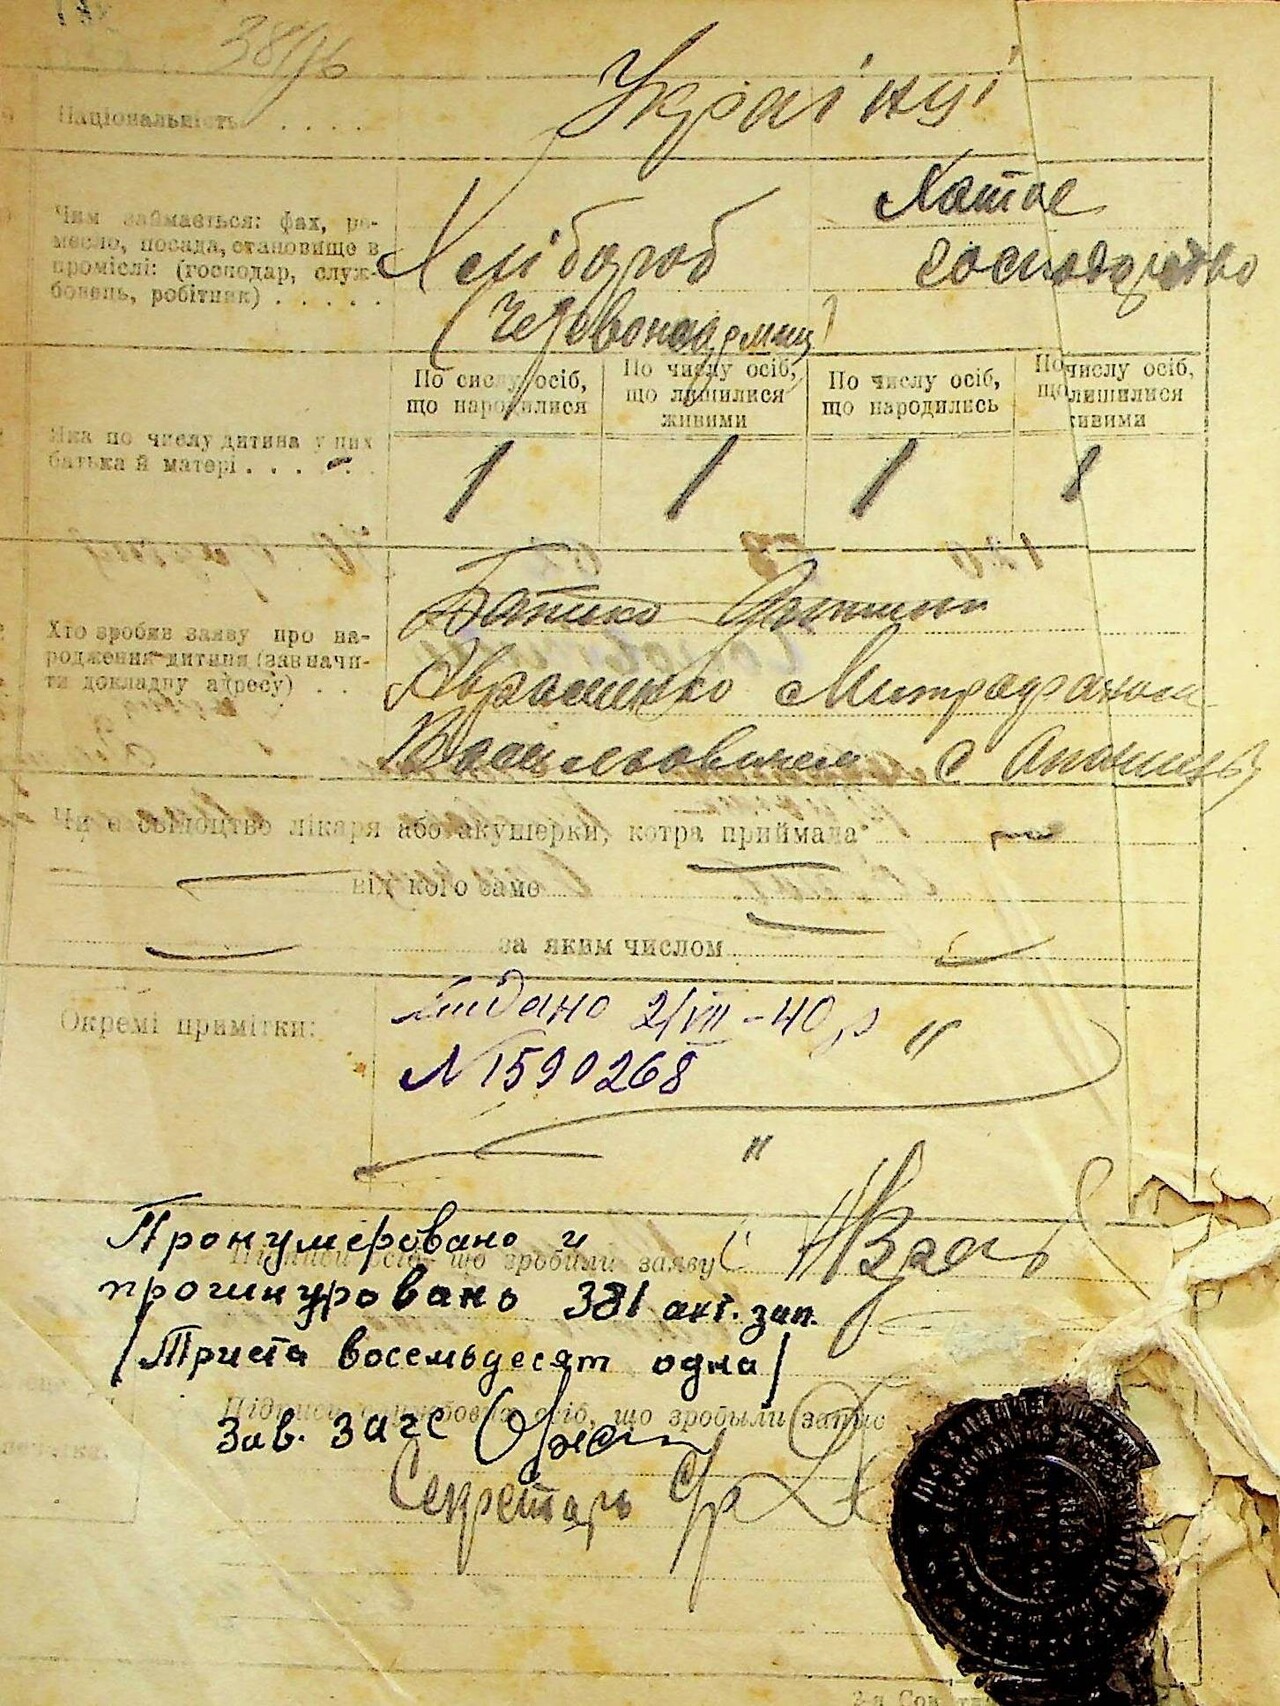 Національність . . . .
Українці
Чим займається: фах, ре-
месло, посада, становище в
проміслі: (господар, служ-
бовець, робітник) . . . . .
Хлібороб
(Червоноармиц)
Хатнє
господарство
По числу осіб, що народилися
По числу осіб, що лишилися живими
По числу осіб, що народились
По числу осіб, що лишилися живими
Яка по числу дитина у них
батька й матері . . . . .
1 1 1 1
Хто зробив заяву про на-
родження дитини (зазначи-
ти докладну адресу) . .
Батько дитини
Авраменко Митрофаном
Васильовичем с
Чи є свідоцтво лікаря або акушерки, котра приймала
від кого саме
за яким числом
Окремі примітки:
видано 2/VII-40 р
№ 1590268
Підписи осіб, що зробили заяву
Пронумеровано и
прошнуровано 381 акт. зап.
/Триста восемьдесят одна/
Підписи службових осіб, що зробили запис
Зав. загс
Секретарь